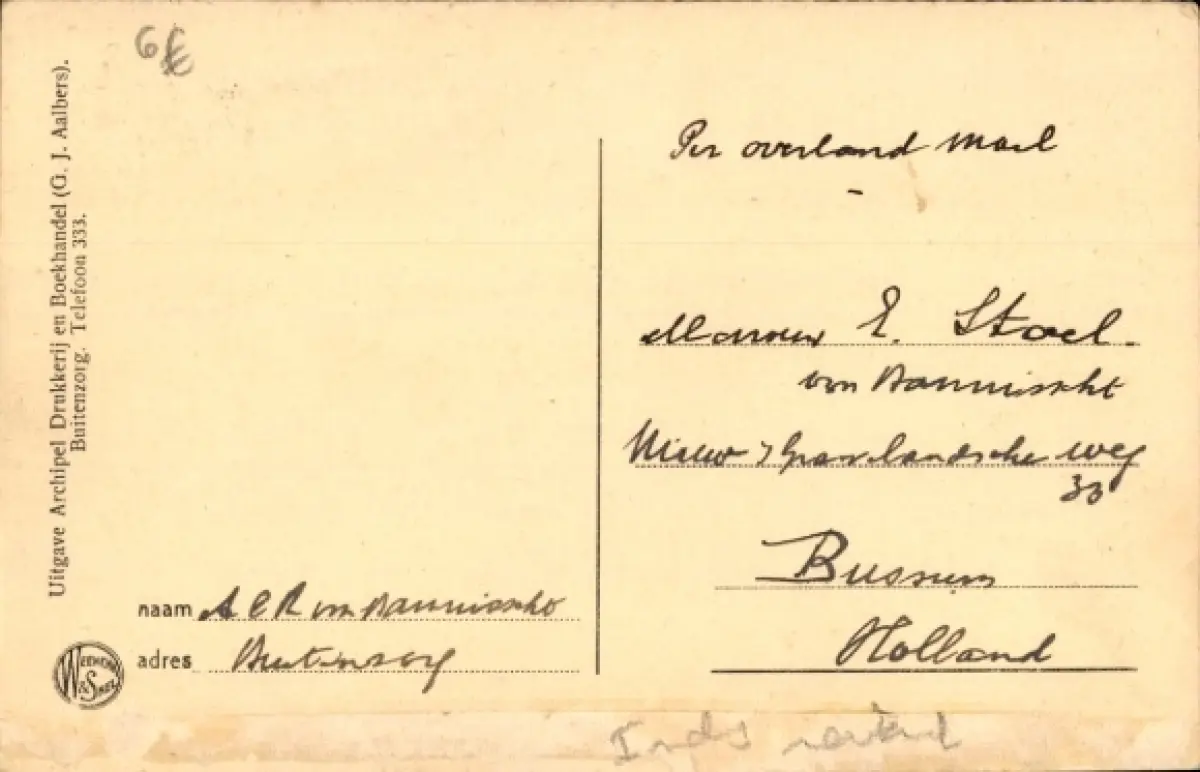 6€
Uitgave Archipel Drukkerij en Boekhandel (G. J. Aalbers).
Buitenzorg. Telefoon 333.
Per overland mail
Mevrouw E. Stoel.
van
Nieuw 's Gravelandsche weg
33
Bussum
Holland
naam A C R van
adres Buitenzorg